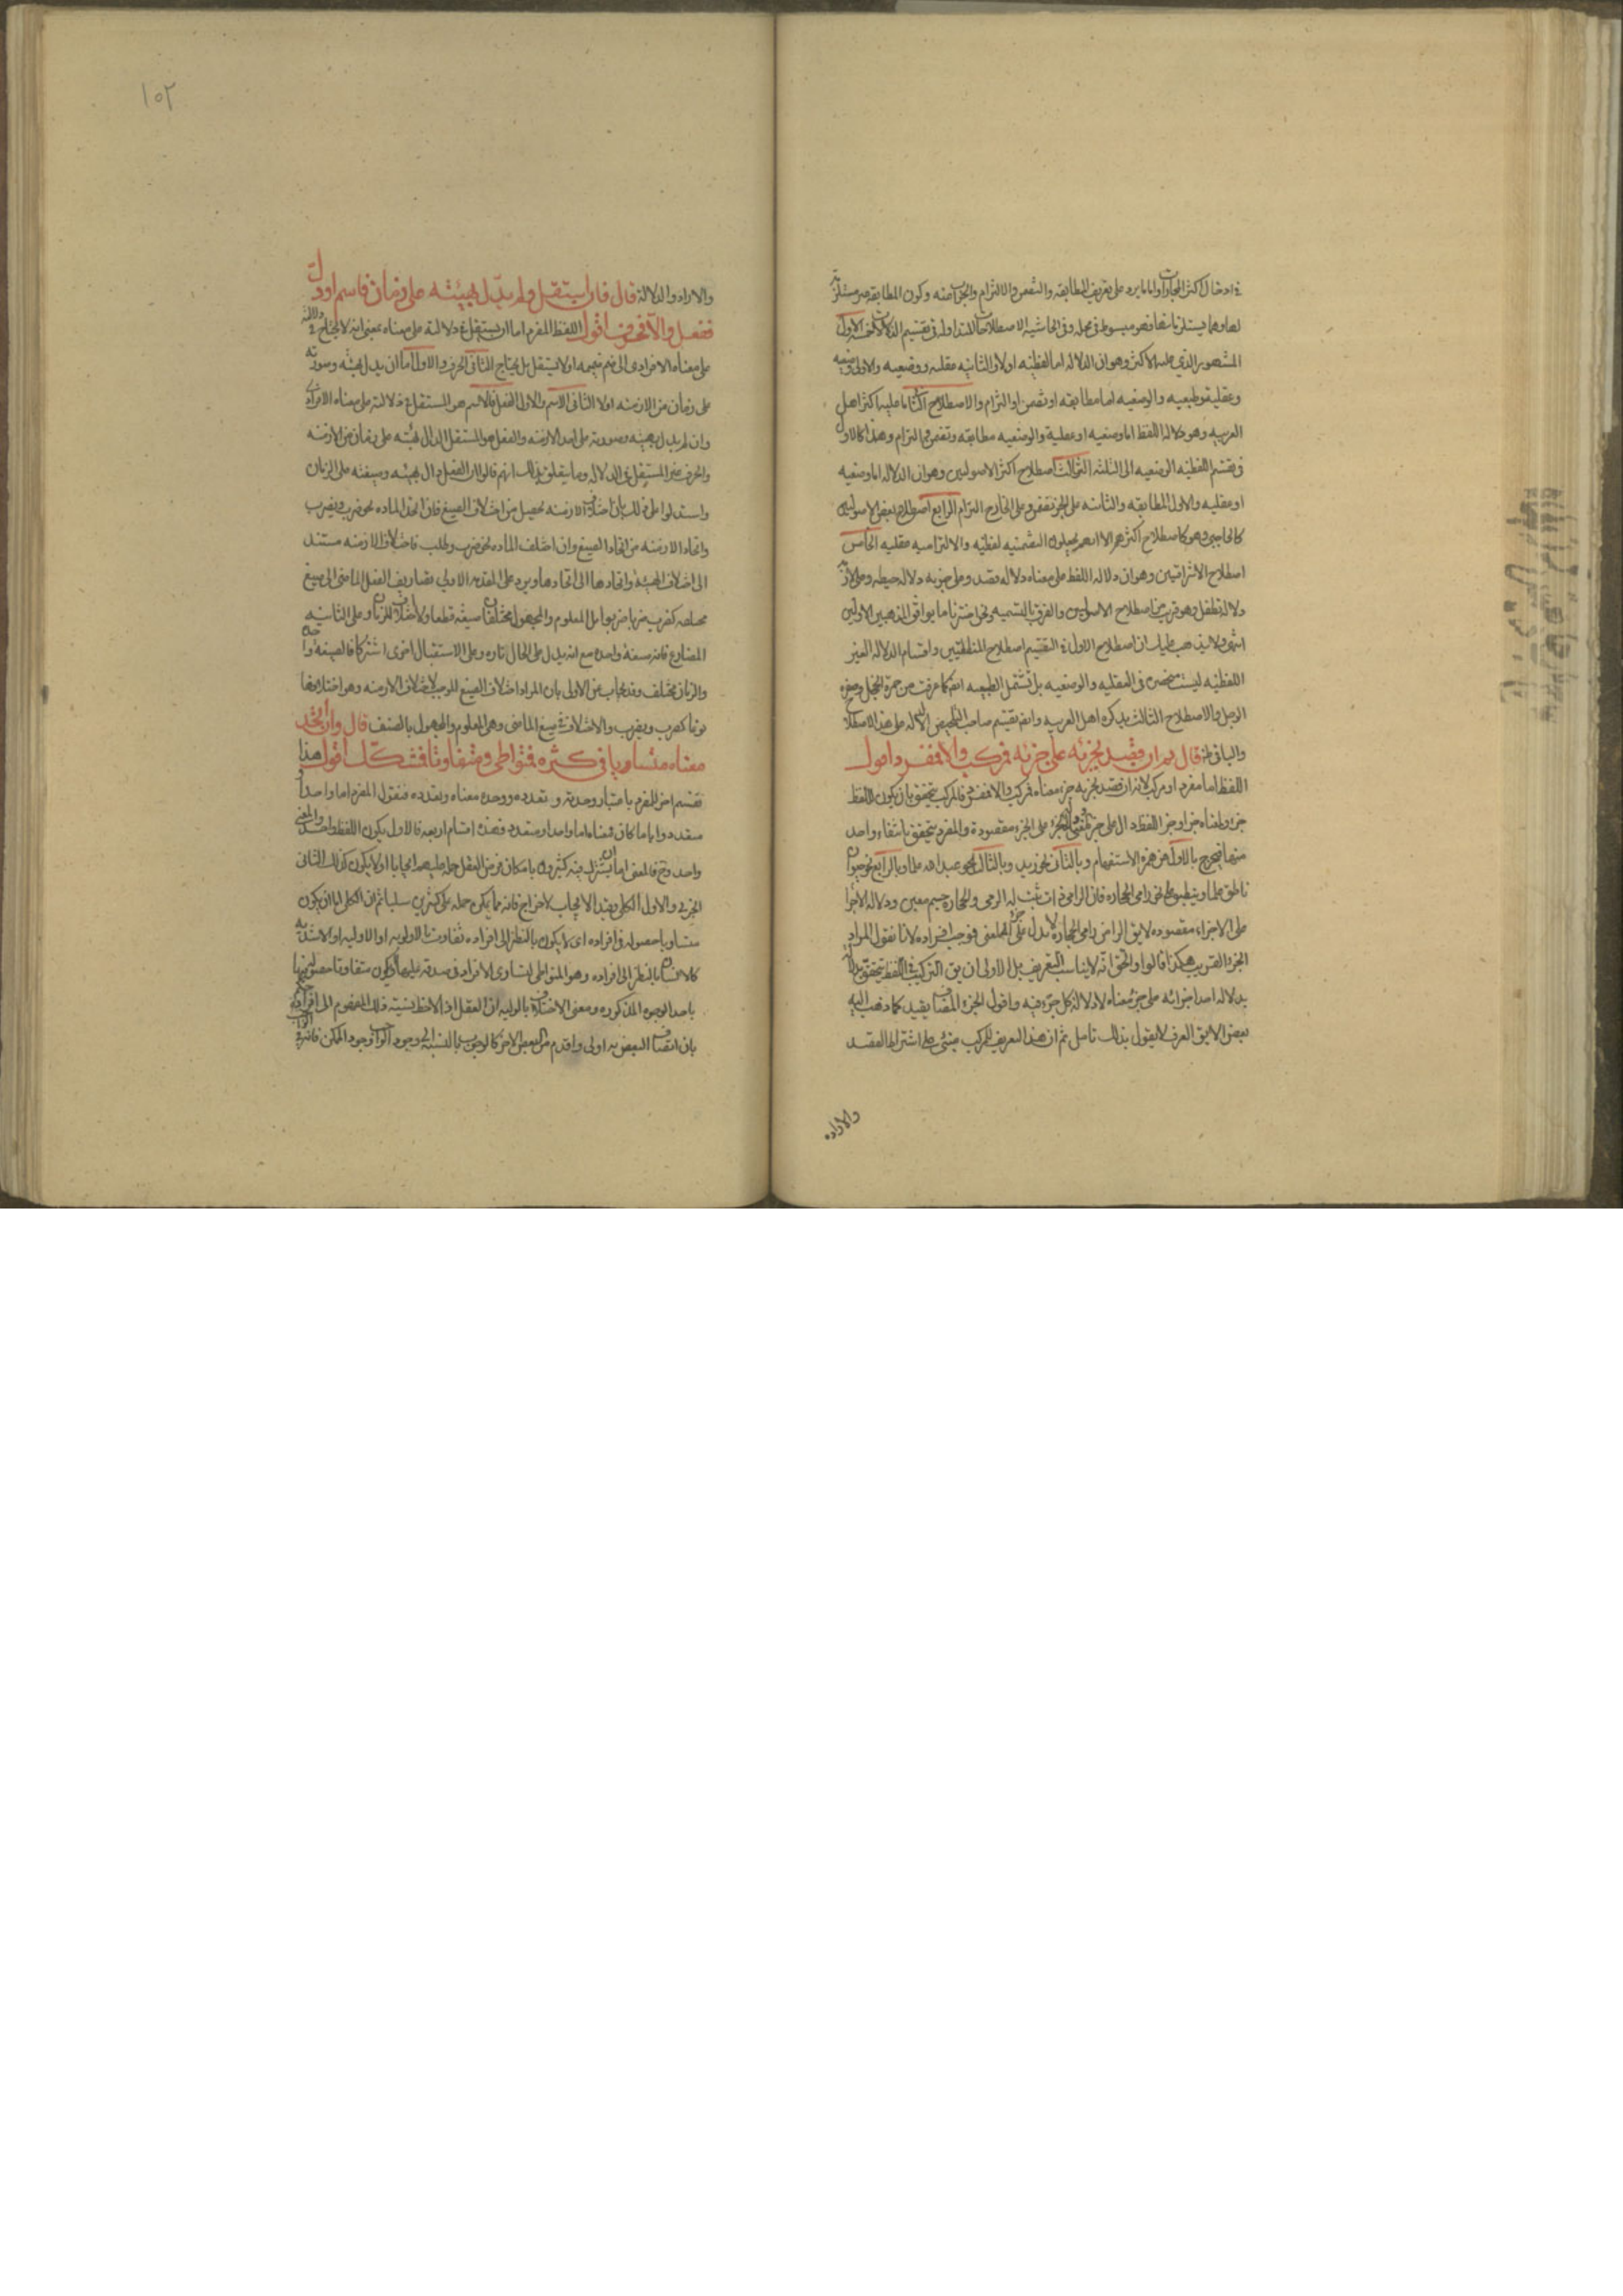 في ادخال اكثر المجازات واما ما يرد على تعريف المطابقه والتضمن والالتزام والجواب عنه وكون المطابقه غير مستلزمة
لهما وهما يستلزمانها فهو مبسوط في محله وفي الحاشيه الاصطلاحات المتداولة في تقسيم الدلالات خمسه الاول
المشهور الذي عليه الاكثر وهو ان الدلاله اما لفظيه اولا والثانيه عقليه ووضعيه والاولى وضعيه
وعقلية وطبعيه والوضعيه اما مطابقه او تضمن او التزام والاصطلاح الثاني ما عليه اكثر اهل
العربيه وهو دلاله اللفظ اما وضعيه او عقلية والوضعيه مطابقه وتضمن والتزام وهذا كالاول
في تقسيم اللفظيه الوضعيه الى الثلثه الثالث اصطلاح اكثر الاصوليين وهو ان الدلاله اما وضعيه
او عقليه والاولى المطابقه والثانيه على الجزء تضمن وعلى الخارج التزام الرابع اصطلاح بعض الاصوليين
كالحاجبي وهو كاصطلاح اكثرهم الا انهم يجعلون التضمنيه لفظيه والالتزاميه عقليه الخامس
اصطلاح الاشراقيين وهو ان دلاله اللفظ على معناه دلاله قصد وعلى جزءه دلاله حيطه وعلى لازمه
دلالة تطفل وهو قريب من اصطلاح الاصوليين والفرق بالتسميه ونحن اخترنا ما يوافق المذهبين الاولين
انتهى ولا يذهب عليك ان اصطلاح الاول في التقسيم اصطلاح المنطقيين واقسام الدلاله الغير
اللفظيه ليست منحصره في العقليه والوضعيه بل تشتمل الطبعيه ايضا كما عرفت من حمرة الخجل وصفرة
الوجل والاصطلاح الثالث يذكره اهل العربيه وايضا تقسيم صاحب التلخيص الدلاله على هذا الاصطلاح
والباقي ظ قال ثم ان قصد بجزئه على جزئه فمركب والا فمفرد اقول
اللفظ اما مفرد او مركب لانه ان قصد بجزءه جزء معناه فمركب والا فمفرد فالمركب يتحقق بان يكون للفظ
جزء ولمعناه جزء وجزء اللفظ دال على جزء المعنى ودلالة الجزء على الجزء مقصودة والمفرد يتحقق بانتفاء واحد
منها فيخرج بالاول همزة الاستفهام وبالثاني نحو زيد وبالثالث نحو عبد الله علما وبالرابع نحو حيوان
ناطق علما وينطبق على نحو رامي الحجارة فان الرامي ذات ثبت له الرمي والحجارة جسم معين ودلاله الاجزا
على الاجزاء مقصوده لا يق الرامي رامي الحجارة لا يدل على جزء المعنى فوجب افراده لانا نقول المراد
الجزء القريب هكذا قالوا والحق انه لا يناسب التعريف بل الاولى ان يق التركيب في اللفظ يتحقق بدلالة
يدلاله احد اجزائه على جزء معناه لا دلالة كل جزء فيه واقول الجزء المضاف يفيد كما ذهب اليه
بعض الا يق العرف لا يقول بذلك تامل ثم ان هذا التعريف للمركب مبنى على اشتراط القصد
والاراده
١٠٢
والاراده والدلالة قال فان استقل ولم يدل بهيئته على زمان فاسم او دل
ففعل والا فحرف اقول اللفظ المفرد اما ان يستقل في دلالته على معناه بمعنى انه لا يحتاج في دلالته
على معناه الافرادي الى ضم ضميمه اولا يستقل بل يحتاج الثاني الحرف والاول اما ان يدل بهيئته وصورته
على زمان من الازمنه اولا الثاني الاسم والاول الفعل فالاسم هو المستقل في دلالته على معناه الافرادي
وان لم يدل بهيئته وصورته على احد الازمنه والفعل هو المستقل الدال بهيئته على زمان من الازمنه
والحرف غير المستقل في الدلاله ومما يتعلق بذلك انهم قالوا ان الفعل دال بهيئته وصيغته على الزمان
واستدلوا على ذلك بان اختلاف الازمنه يحصل من اختلاف الصيغ فان اتحد الماده نحو ضرب ويضرب
واتحاد الازمنه من اتحاد الصيغ وان اختلف الماده نحو ضرب وطلب فاختلاف الازمنه مستند
الى اختلاف الهيئه واتحادها الى اتحادها ويرد على المقدمه الاولى تصاريف الفعل الماضي الى صيغ
مختلفه كضرب ضربا ضربوا بل المعلوم والمجهول مختلفان صيغه قطعا ولا اختلاف للزمان وعلى الثانيه
المضارع فانه صيغة واحده مع انه يدل على الحال تاره وعلى الاستقبال اخرى اشتركا فالصيغه واحده
والزمان مختلف وقد يجاب عن الاولى بان المراد اختلاف الصيغ الموجب لاختلاف الازمنه وهو اختلافها
نوعا كضرب ويضرب والاختلاف في صيغ الماضي وهي المعلوم والمجهول بالصنف قال وان اتحد
معناه متساويا في كثره فمتواطي ومتفاوتا فمشكك اقول هذا
تقسيم اخر للمفرد باعتبار وحدته وتعدده ووحدة معناه وتعدده فنقول المفرد اما واحد او
متعدد وايا ما كان فمعناه اما واحد او متعدد فهذه اقسام اربعه فالاول يكون اللفظ واحدا والمعنى
واحد وح فالمعنى اما ان يشترك فيه كثيرون بامكان فرض العقل حمله عليهم ايجابا اولا يكون كذلك الثاني
الجزئي والاول الكلي وقيد الايجاب لاخراج فانه مما يمكن حمله على كثيرين سلبا ثم ان الكلي اما ان يكون
متساويا حصوله في افراده اى لا يكون بالنظر الى افراده تفاوت بالاولويه او الاوليه او الاشديه
كالانسان بالنظر الى افراده وهو المتواطي لتساوى الافراد في صدقه عليها او يكون متفاوتا حصوله فيها
باحد الوجوه المذكوره ومعنى الاختلاف بالاوليه ان العقل اذا لاحظ نسبة ذلك المفهوم الى افراده حكم
بان اتصاف البعض به اولى واقدم من البعض الاخر كالوجود بالنسبه الى وجود الواجب ووجود الممكن فانه في